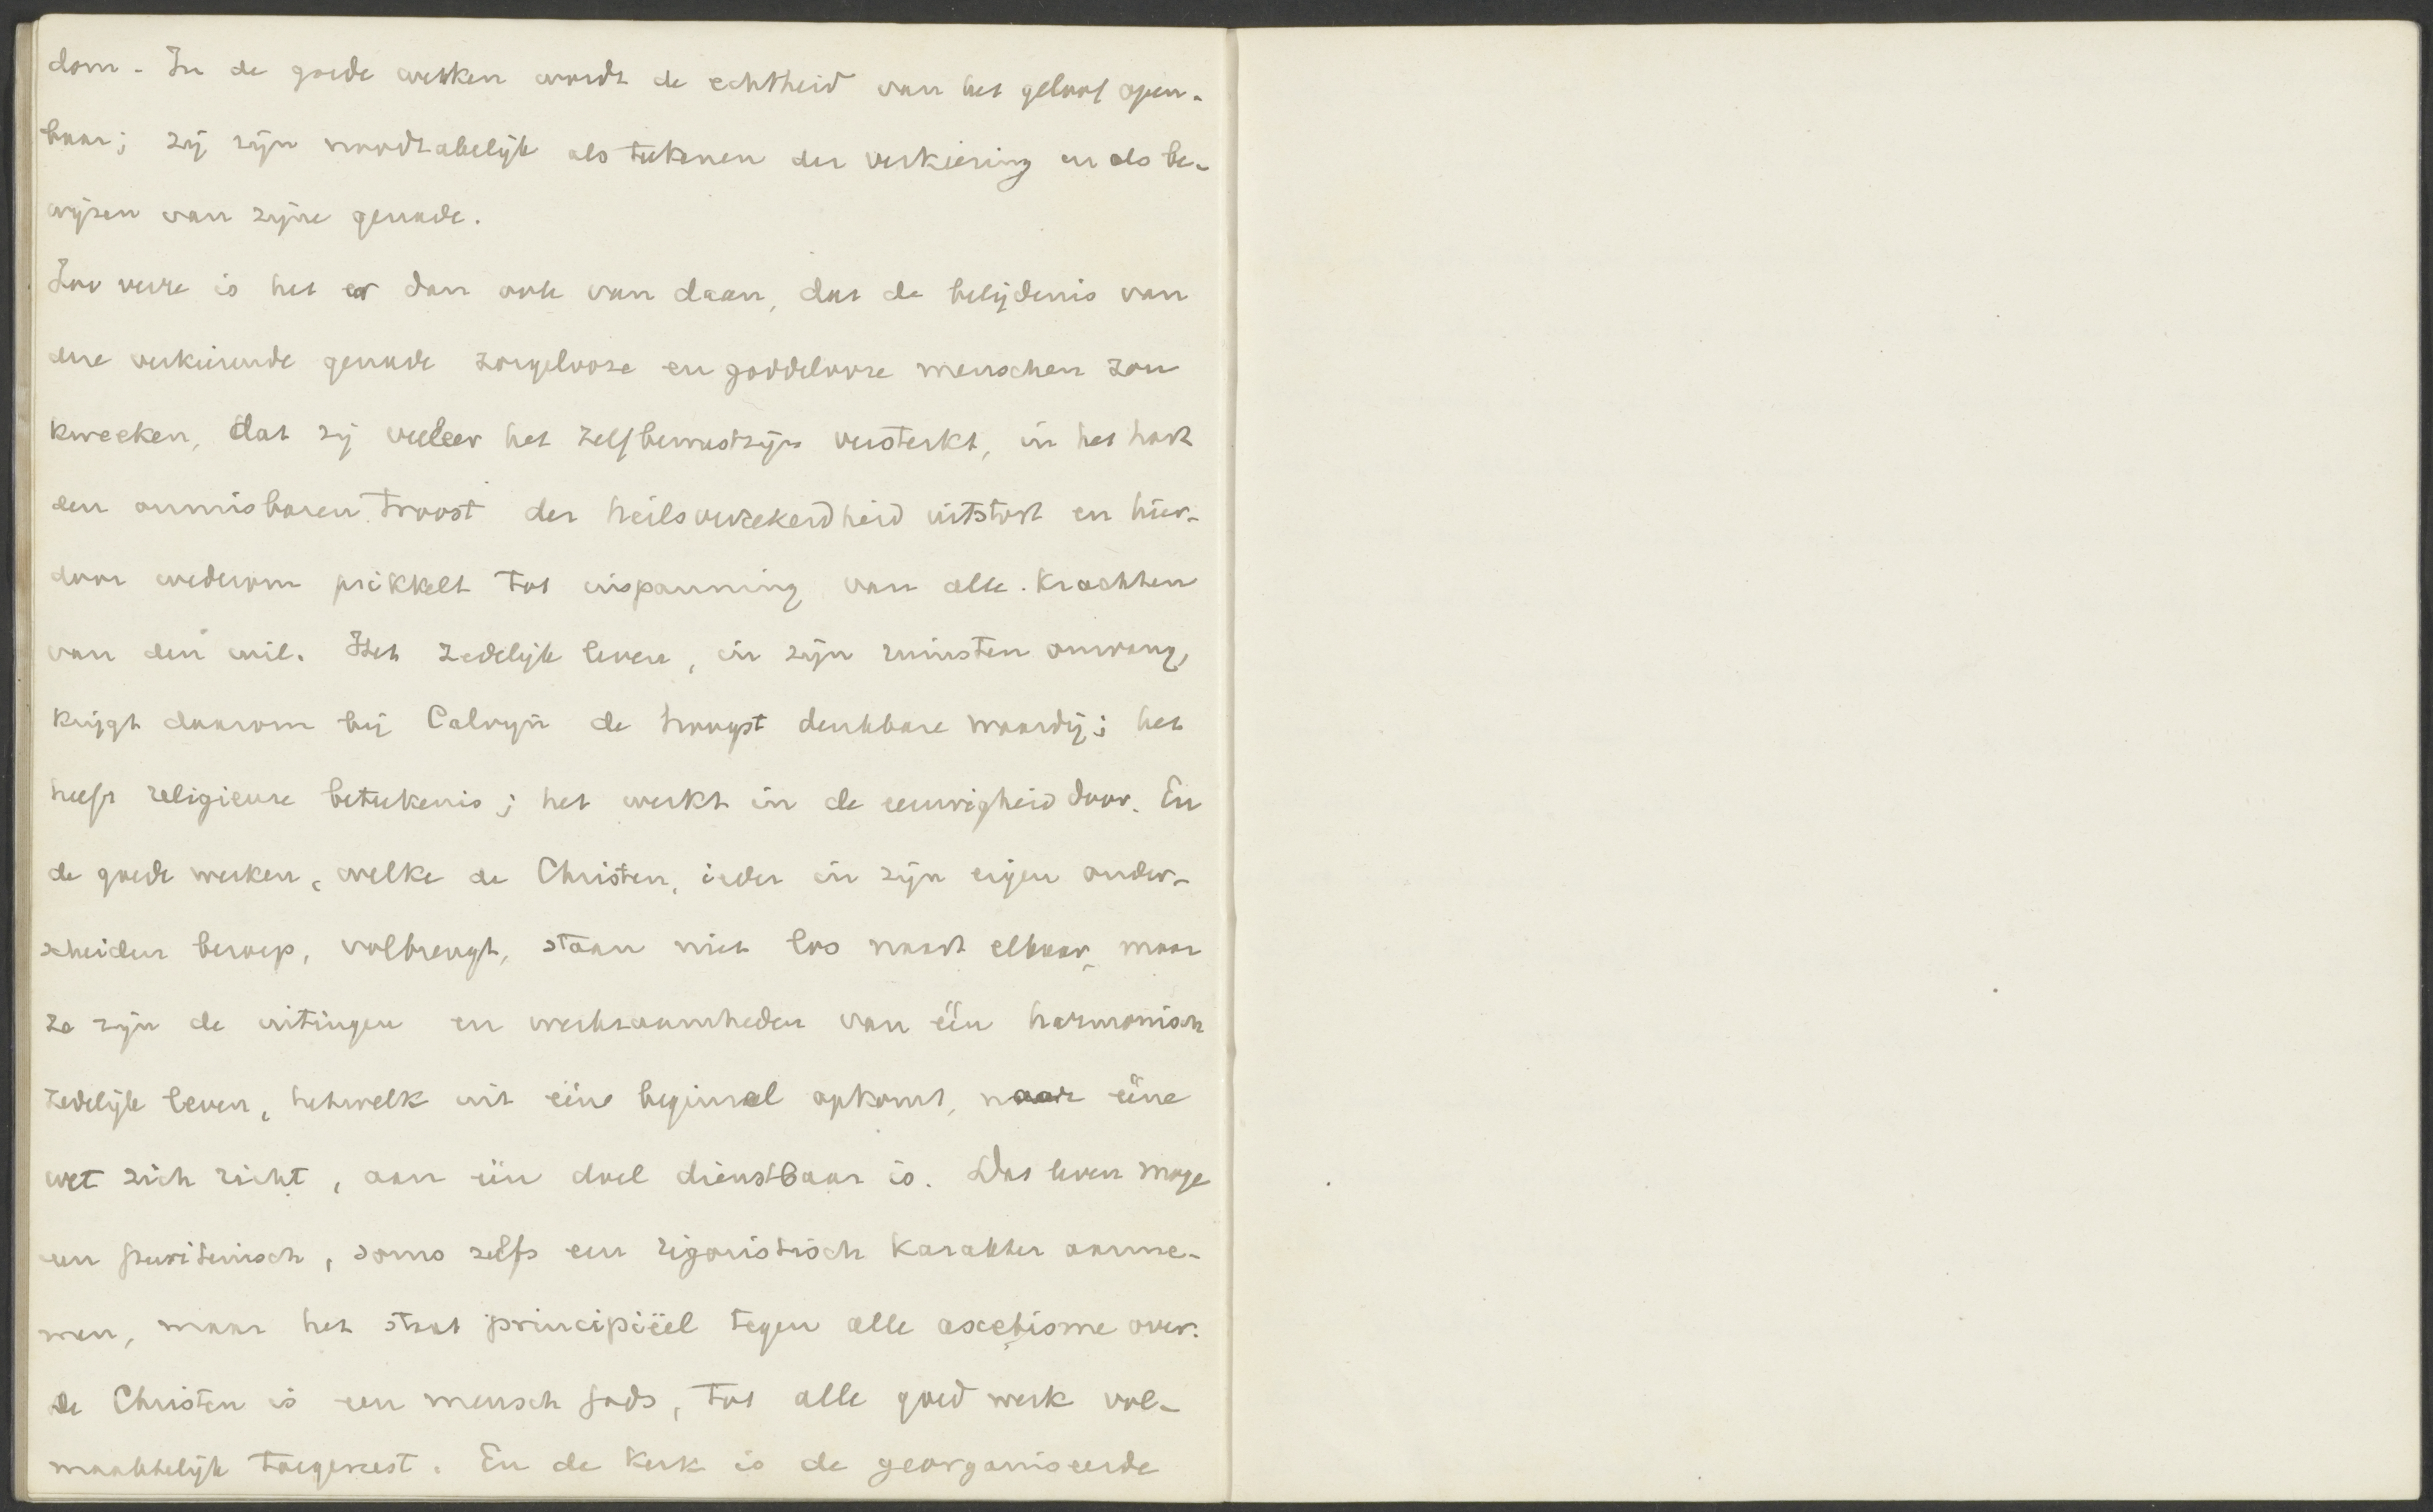 dom. In de goede werken wordt de echtheid van het geloof open-
baar; zij zijn noodzakelijk als teekenen der verkiezing en als be-
wijzen van zijne genade.
Zoo verre is het er dan ook van daan, dat de belijdenis van
die verkiezende genade zorgelooze en goddelooze menschen zou
kweeken, dat zij veeleer het zelfbewustzijn versterkt, in het hart
den onmisbaren troost der heilsverzekerdheid uitstort en hier-
door wederom prikkelt tot inspanning van alle krachten
van den wil. Het zedelijk leven, in zijn ruimsten omvang,
krijgt daarom bij Calvijn de hoogst denkbare waardij; het
heeft religieuse beteekenis; het werkt in de eeuwigheid door. En
de goede werken, welke de Christen, ieder in zijn eigen onder-
scheiden beroep, volbrengt, staan niet los naast elkaar, maar
ze zijn de uitingen en werkzaamheden van één harmonisch
zedelijk leven, hetwelk uit ééne beginsel opkomt, naar ééne
wet zich richt, aan één doel dienstbaar is. Dat leven moge
een puriteinsch, soms zelfs een rigoristisch karakter aanne-
men, maar het staat principiëel tegen alle ascetisme over.
de Christen is een mensch Gods, tot alle goed werk vol-
maaktelijk toegerust. En de kerk is de georganiseerde